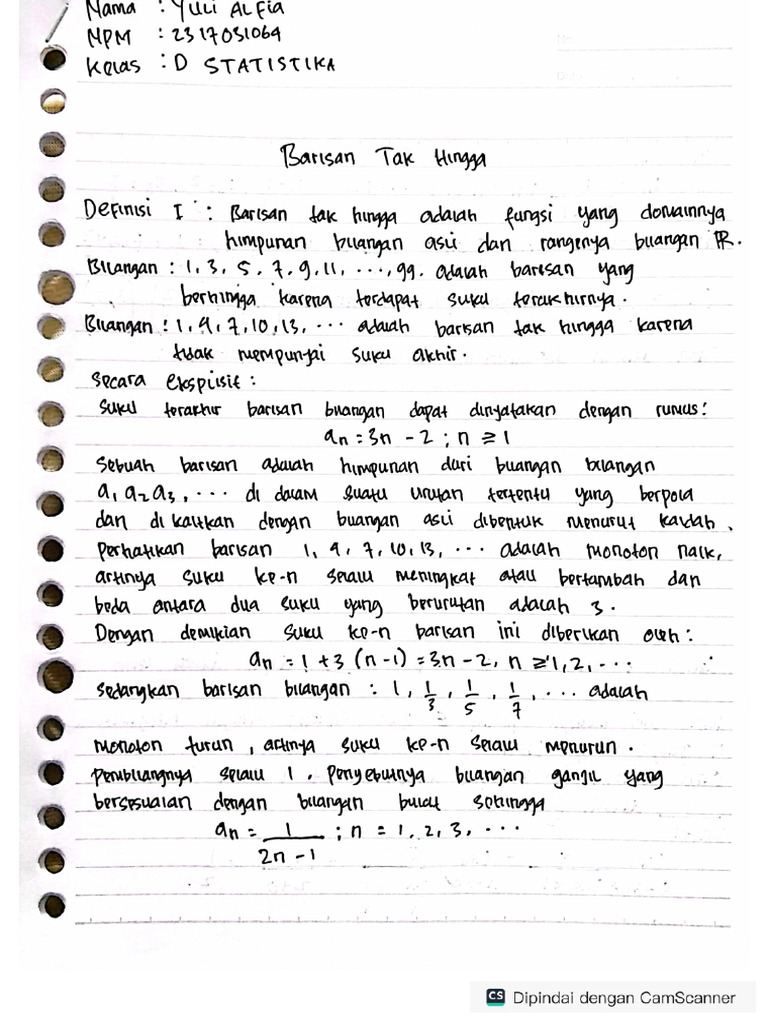 Nama : Yuli Alfia
NPM : 2317031069
Kelas : D STATISTIKA
Barisan Tak Hingga
Definisi I : Barisan tak hingga adalah fungsi yang domainnya
himpunan bilangan asli dan rangenya bilangan ℝ.
Bilangan : 1, 3, 5, 7, 9, 11, ..., 99. adalah barisan yang
berhingga karena terdapat suku terakhirnya.
Bilangan : 1, 4, 7, 10, 13, ... adalah barisan tak hingga karena
tidak mempunyai suku akhir.
Secara eksplisit :
Suku terakhir barisan bilangan dapat dinyatakan dengan rumus:
an = 3n - 2 ; n ≥ 1
Sebuah barisan adalah himpunan dari bilangan bilangan
a1 a2 a3, ... di dalam suatu urutan tertentu yang berpola
dan di kaitkan dengan bilangan asli dibentuk menurut kaidah.
Perhatikan barisan 1, 4, 7, 10, 13, ... adalah monoton naik,
artinya suku ke-n selalu meningkat atau bertambah dan
beda antara dua suku yang berurutan adalah 3.
Dengan demikian suku ke-n barisan ini diberikan oleh:
an = 1 + 3 (n-1) = 3n - 2, n ≥ 1, 2, ...
Sedangkan barisan bilangan : 1, 1/3, 1/5, 1/7, ... adalah
monoton turun, artinya suku ke-n selalu menurun.
Pembilangnya selalu 1. Penyebutnya bilangan ganjil yang
bersesuaian dengan bilangan bulat sehingga
an = 1/(2n - 1) ; n = 1, 2, 3, ...
CS Dipindai dengan CamScanner